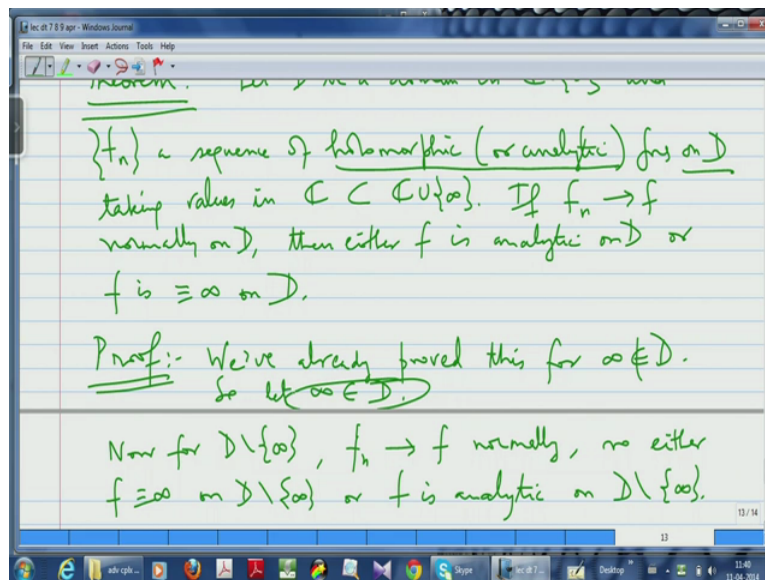 lec dt 7 8 9 apr - Windows Journal
File Edit View Insert Actions Tools Help
Theorem: Let D be a domain in ℂ∪{∞} and
{fn} a sequence of holomorphic (or analytic) fns on D
taking values in ℂ ⊂ ℂ∪{∞}. If fn → f
normally on D, then either f is analytic on D or
f is ≡ ∞ on D.
Proof:- We've already proved this for ∞ ∉ D.
So let ∞ ∈ D.
Now for D\{∞}, fn → f normally, so either
f ≡ ∞ on D\{∞} or f is analytic on D\{∞}.
13 / 14
13
adv cplx... Skype lec dt 7... Desktop 11:40
11-04-2014